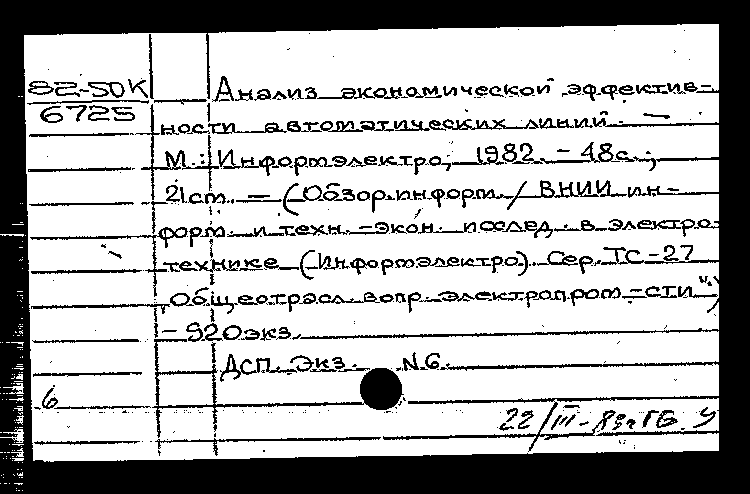 82-50К
6725
Анализ экономической эффектив-
ности автоматических линий. —
М.: Информэлектро, 1982. - 48с.;
21см. — (Обзор.информ. / ВНИИ ин-
форм. и техн.-экон. исслед. в электро-
технике (Информэлектро). Сер. ТС-27
"Общеотрасл. вопр. электропром-сти")
- 920экз.
ДСП. Экз. N6.
6
22/III-83г